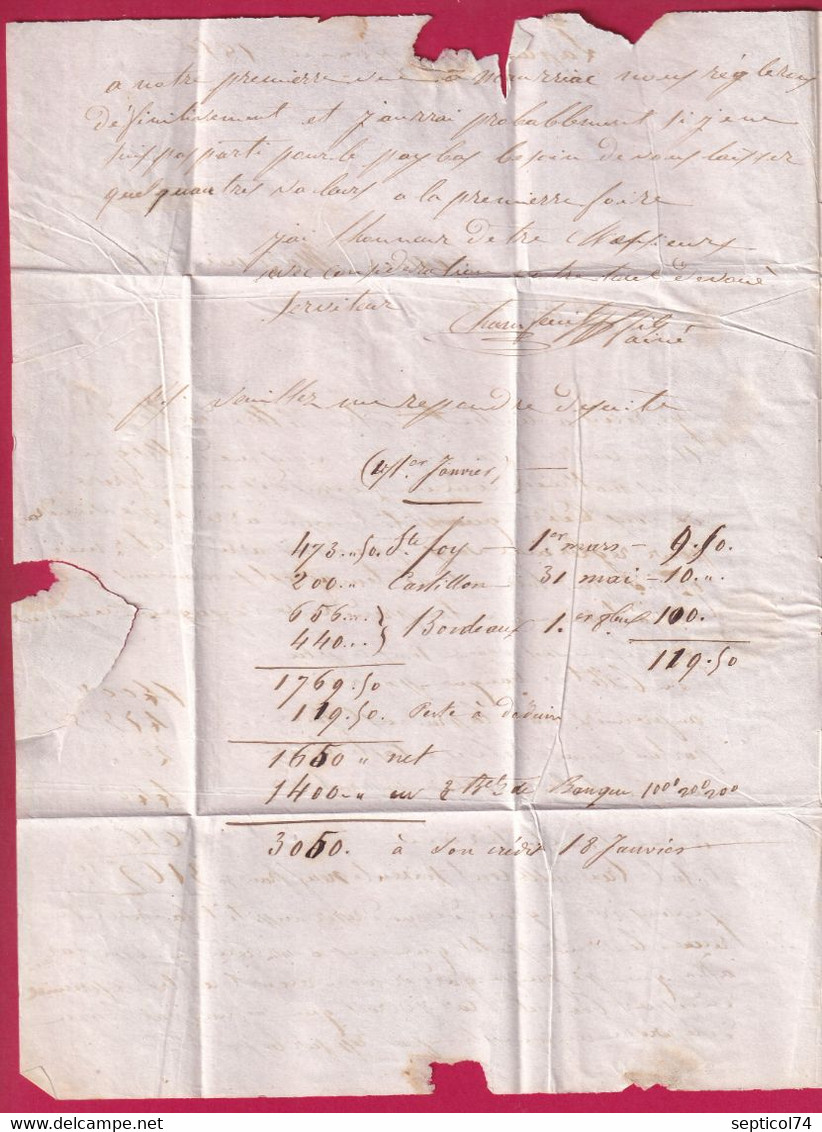 a notre premierre vue a mauriac nous réglerons
définitivement et j'aurrai probablement si je ne
suis pas parti pour le pay bas besoin de vous laisser
quelquautres valeurs a la premierre foire
j'ai l'honneur detre Messieurs
avec consideration votre tout devoué
serviteur
fils ainé
veuillez me reppondre de suite
(1er Janvier)
473..50. Ste foy - 1er mars - 9.50.
200.. Castillon 31 mai - 10..
656... } Bordeaux 1.er 100.
440... }
119.50
1769.50
119.50. Perte à déduire
1650 " net
1400.. en 3 Bts de Banque 1000 200 200
3050. à son crédit 18 Janvier
septicol74